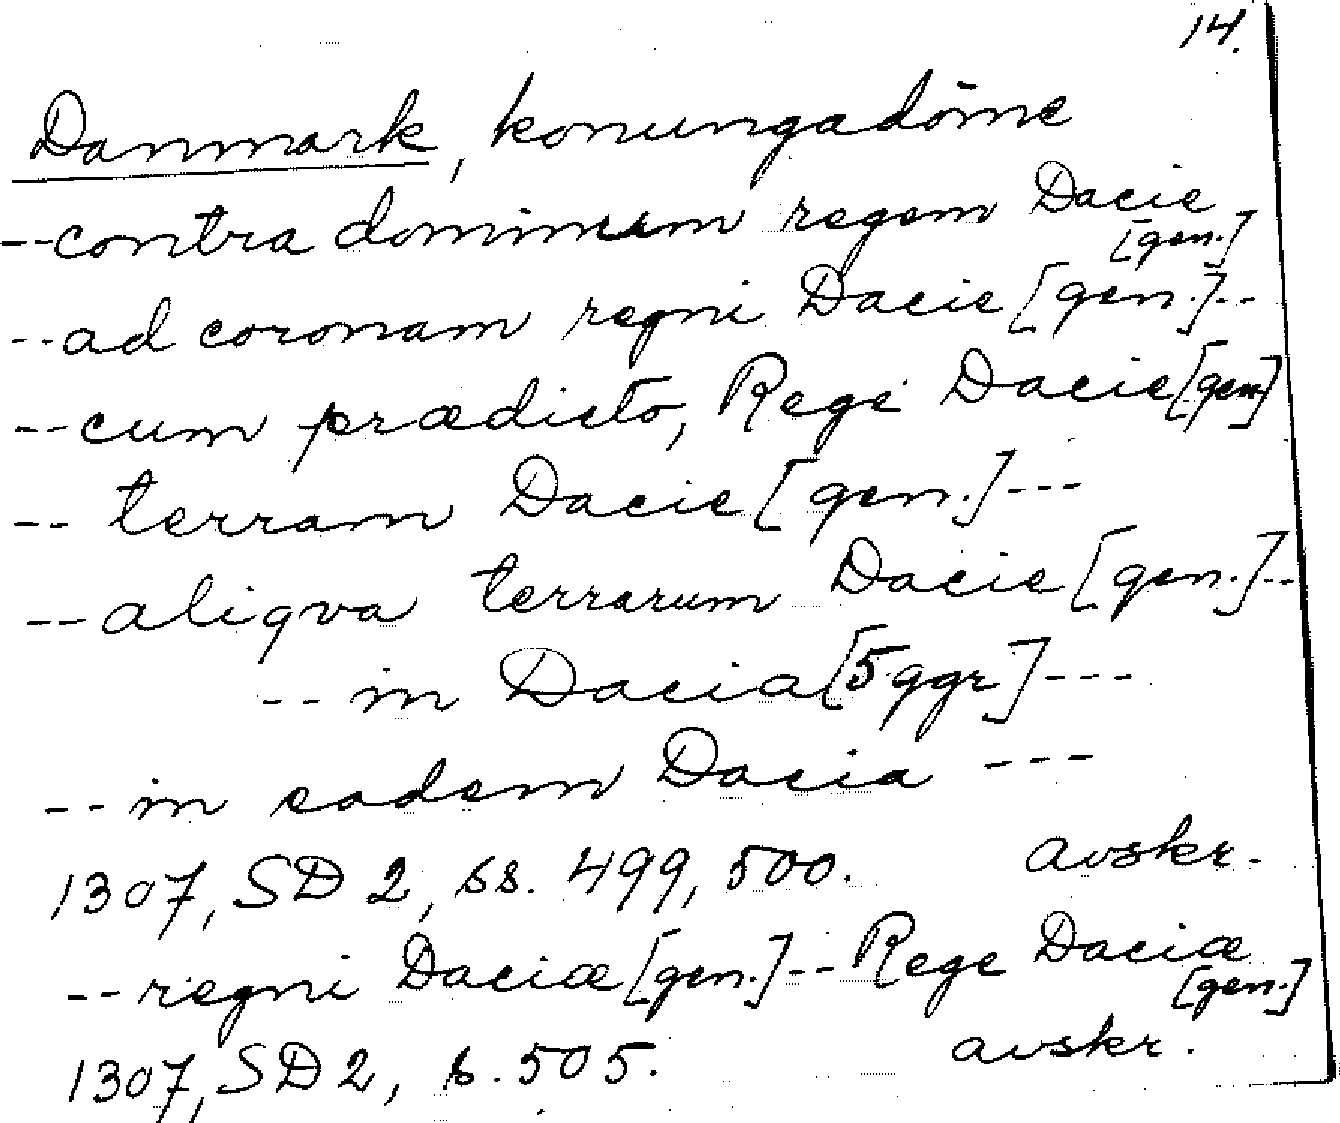 14.
Danmark, konungadöme
--contra dominum regem Dacie
[gen.]
--ad coronam regni Dacie [gen.]--
--cum prædicto, Rege Dacie [gen]
-- terram Dacie [gen.]---
--aliqva terrarum Dacie [gen.]--
-- in Dacia [5 ggr]---
--in eadem Dacia ---
1307, SD 2, ss. 499, 500. avskr.
--regni Daciæ [gen.]--Rege Daciæ
[gen.]
1307, SD 2, s. 505. avskr.